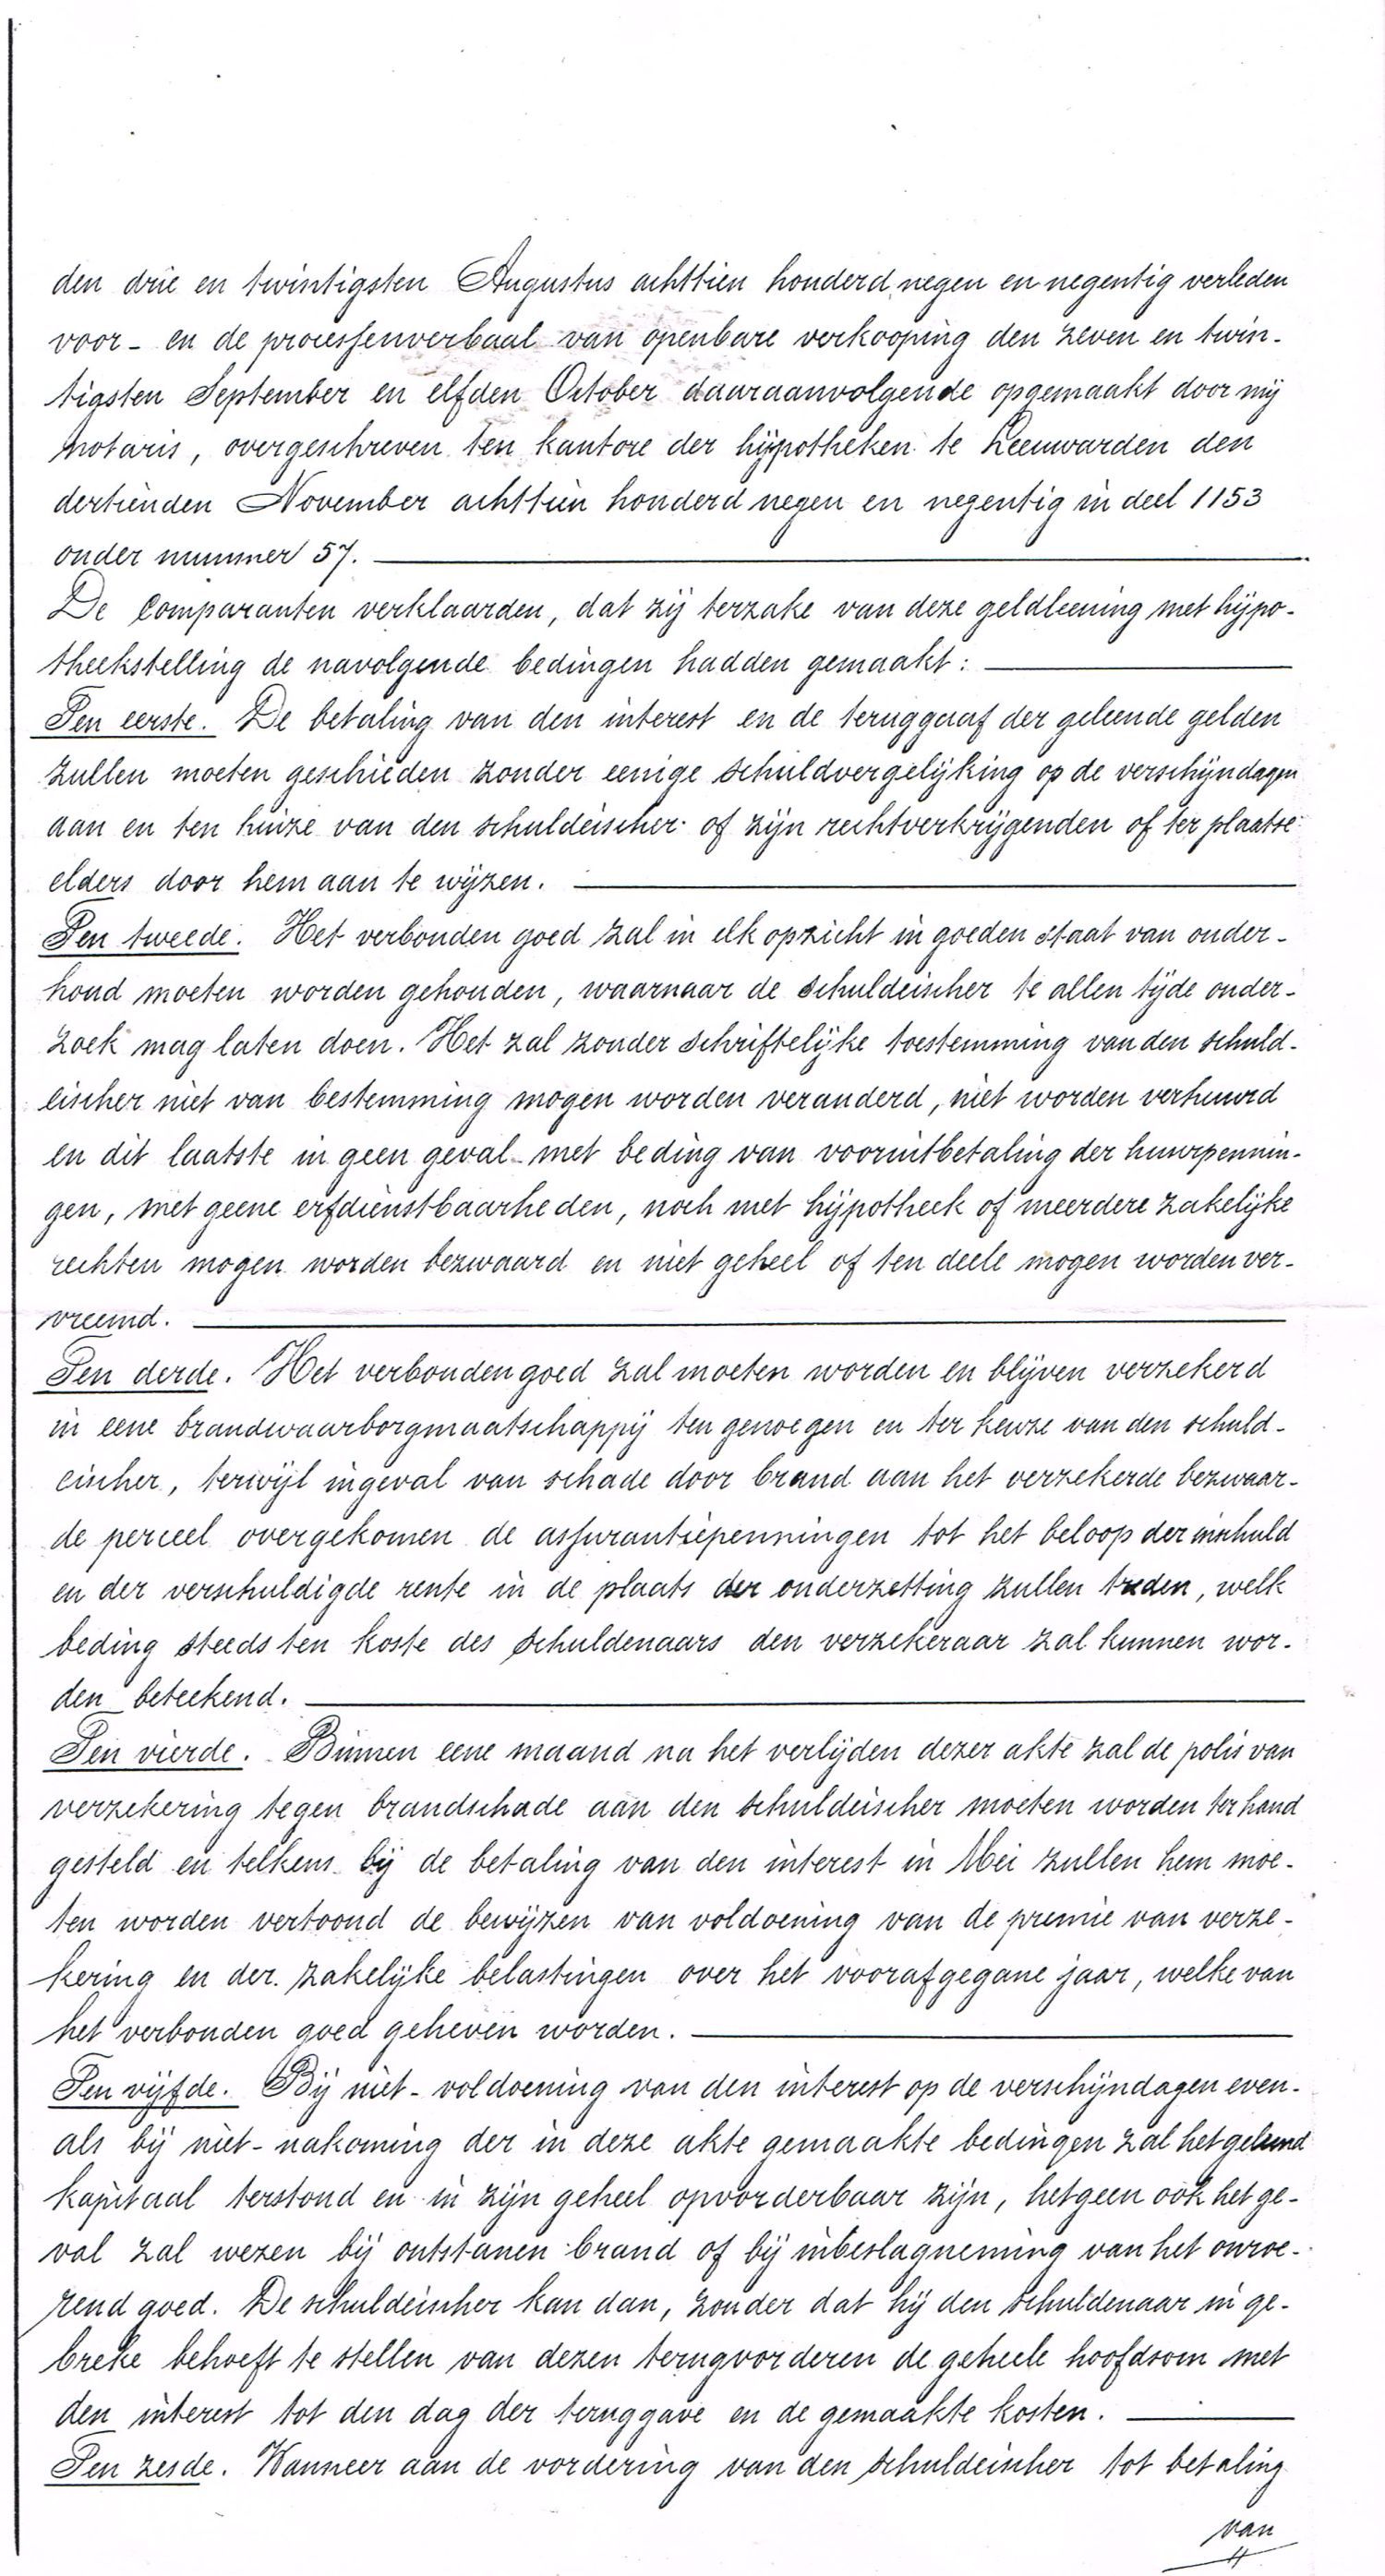 den drie en twintigsten Augustus achttien honderd negen en negentig verleden
voor- en de processenverbaal van openbare verkooping den zeven en twin-
tigsten September en elfden October daaraanvolgende opgemaakt door mij
notaris, overgeschreven ten kantore der hijpotheken te Leeuwarden den
dertienden November achttien honderd negen en negentig in deel 1153
onder nummer 57.
De Comparanten verklaarden, dat zij terzake van deze geldleening met hijpo-
theekstelling de navolgende bedingen hadden gemaakt:
Ten eerste. De betaling van den interest en de teruggaaf der geleende gelden
zullen moeten geschieden zonder eenige schuldvergelijking op de verschijndagen
aan en ten huize van den schuldeischer of zijn rechtverkrijgenden of ter plaatse
elders door hem aan te wijzen.
Ten tweede. Het verbonden goed zal in elk opzicht in goeden staat van onder-
houd moeten worden gehouden, waarnaar de schuldeischer te allen tijde onder-
zoek mag laten doen. Het zal zonder schriftelijke toestemming van den schuld-
eischer niet van bestemming mogen worden veranderd, niet worden verhuurd
en dit laatste in geen geval met beding van vooruitbetaling der huurpennin-
gen, met geene erfdienstbaarheden, noch met hijpotheek of meerdere zakelijke
rechten mogen worden bezwaard en niet geheel of ten deele mogen worden ver-
vreemd.
Ten derde. Het verbonden goed zal moeten worden en blijven verzekerd
in eene brandwaarborgmaatschappij ten genoegen en ter keuze van den schuld-
eischer, terwijl ingeval van schade door brand aan het verzekerde bezwaar-
de perceel overgekomen de assurantiepenningen tot het beloop der inschuld
en der verschuldigde rente in de plaats der onderzetting zullen treden, welk
beding steeds ten koste des schuldenaars den verzekeraar zal kunnen wor-
den beteekend.
Ten vierde. Binnen eene maand na het verlijden dezer akte zal de polis van
verzekering tegen brandschade aan den schuldeischer moeten worden ter hand
gesteld en telkens bij de betaling van den interest in Mei zullen hem moe-
ten worden vertoond de bewijzen van voldoening van de premie van verze-
kering en der zakelijke belastingen over het voorafgegane jaar, welke van
het verbonden goed geheven worden.
Ten vijfde. Bij niet-voldoening van den interest op de verschijndagen even-
als bij niet-nakoming der in deze akte gemaakte bedingen zal het geleend
kapitaal terstond en in zijn geheel opvorderbaar zijn, hetgeen ook het ge-
val zal wezen bij ontstanen brand of bij inbeslagneming van het onroe-
rend goed. De schuldeischer kan dan, zonder dat hij den schuldenaar in ge-
breke behoeft te stellen van dezen terugvorderen de geheele hoofdsom met
den interest tot den dag der teruggave en de gemaakte kosten.
Ten zesde. Wanneer aan de vordering van den schuldeischer tot betaling
van